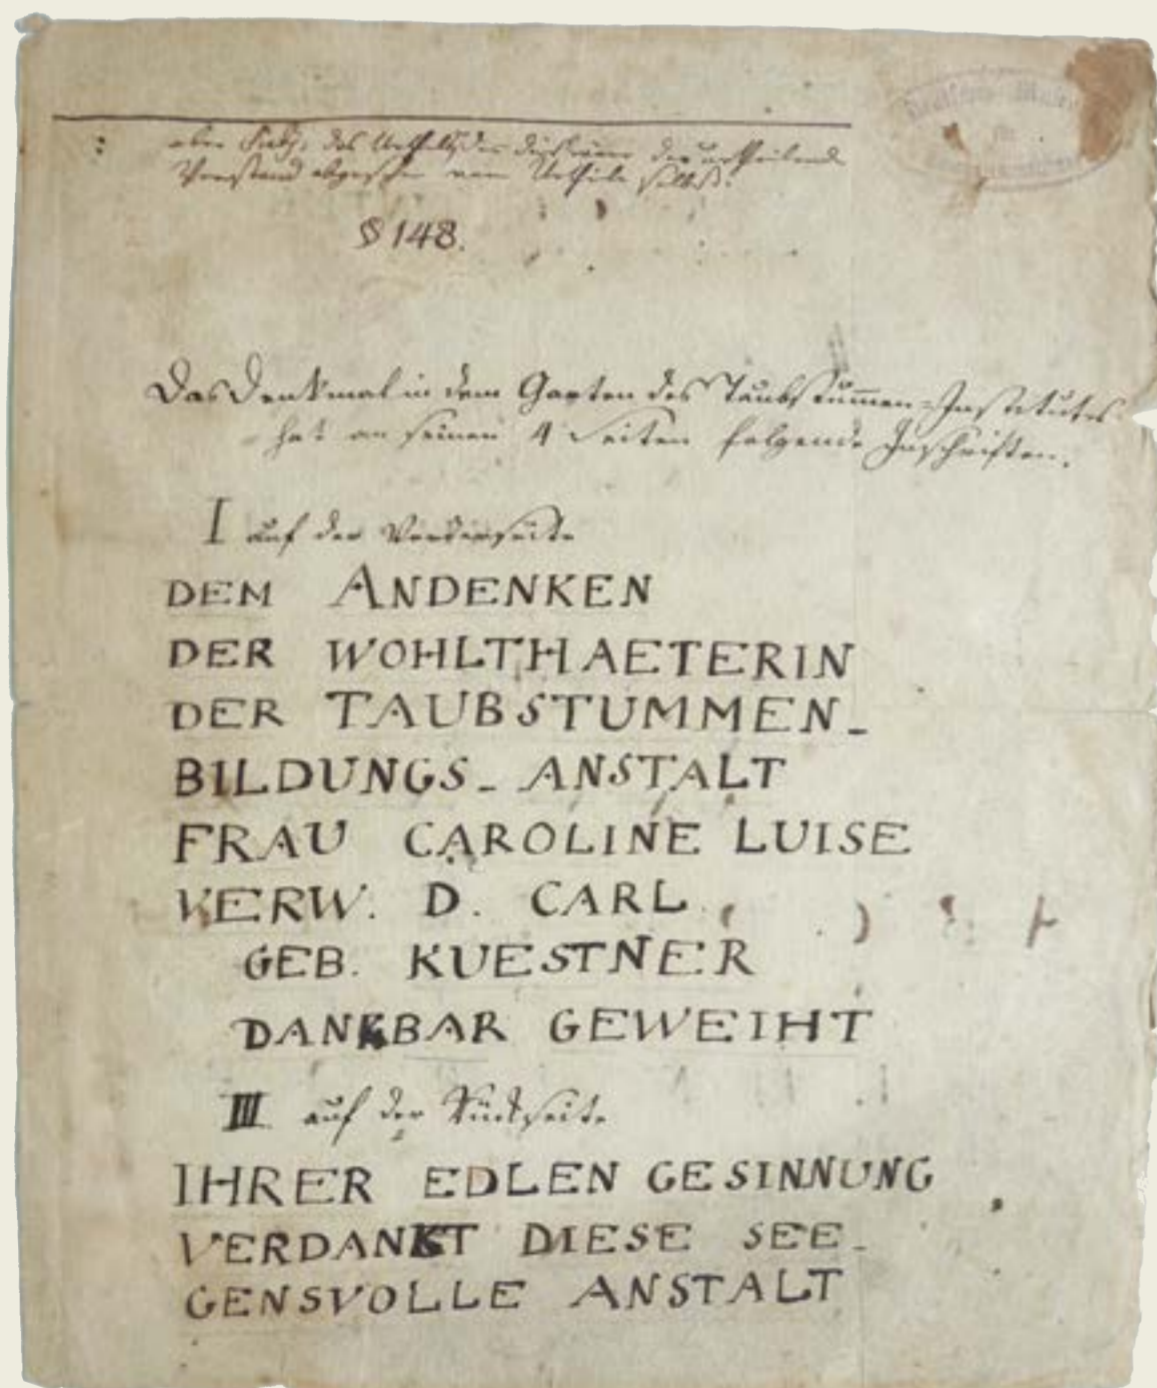 : aber Subj. des Urtheils, der
Verstand abgesehen vom Urtheile selbst.
§ 148.
Das Denkmal in dem Garten des Taubstummen-Institutes
hat an seinen 4 Seiten folgende Inschriften.
I auf der Vorderseite
DEM ANDENKEN
DER WOHLTHAETERIN
DER TAUBSTUMMEN-
BILDUNGS-ANSTALT
FRAU CAROLINE LUISE
VERW. D. CARL
GEB. KUESTNER
DANKBAR GEWEIHT
III auf der Rückseite
IHRER EDLEN GESINNUNG
VERDANKT DIESE SEE-
GENSVOLLE ANSTALT